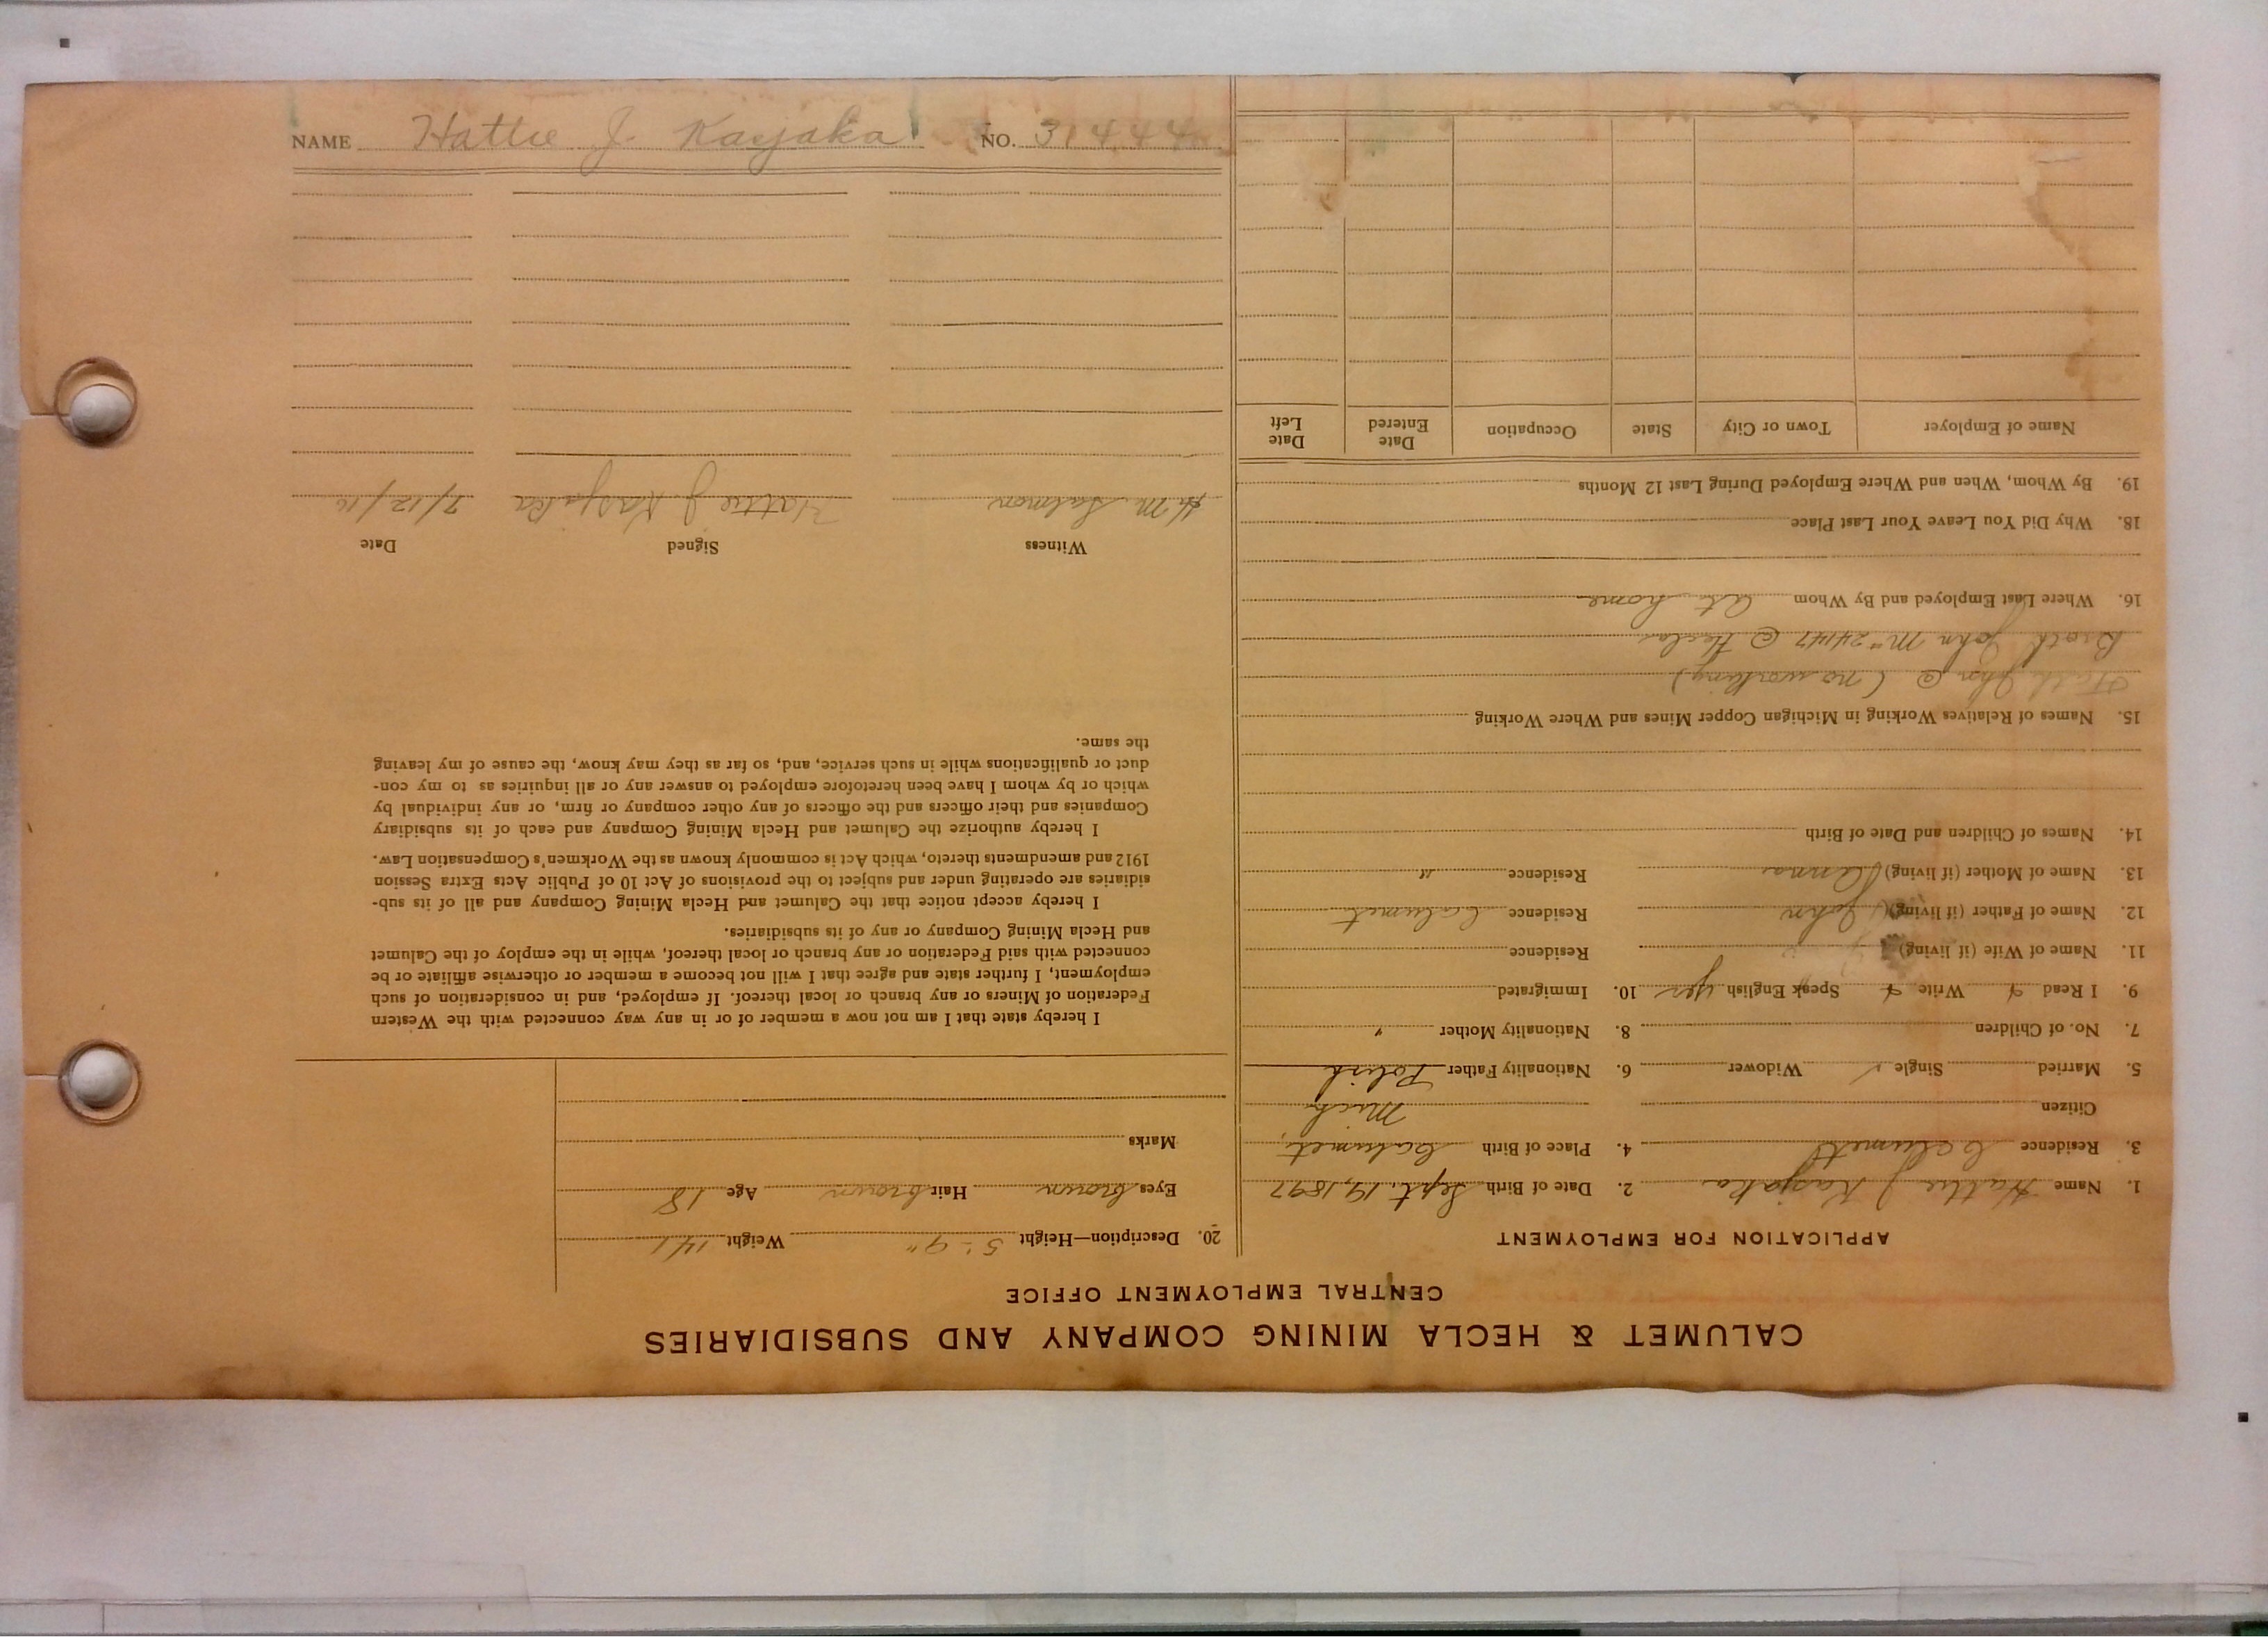 CALUMET & HECLA MINING COMPANY AND SUBSIDIARIES
CENTRAL EMPLOYMENT OFFICE
APPLICATION FOR EMPLOYMENT
1. Name Hattie J Kasjaka 2. Date of Birth Sept. 19, 1897
3. Residence Calumet 4. Place of Birth Calumet,
Citizen Mich
5. Married Single ✓ Widower 6. Nationality Father Polish
7. No. of Children 8. Nationality Mother "
9. I Read Write Speak English yes 10. Immigrated
11. Name of Wife (if living) Residence
12. Name of Father (if living) John Residence Calumet
13. Name of Mother (if living) Residence "
14. Names of Children and Date of Birth
15. Names of Relatives Working in Michigan Copper Mines and Where Working
John @ (no working)
Broth John 24147 @ Hecla
16. Where Last Employed and By Whom at home
18. Why Did You Leave Your Last Place
19. By Whom, When and Where Employed During Last 12 Months
Name of Employer Town or City State Occupation Date Entered Date Left
20. Description—Height 5'-9" Weight 141
Eyes brown Hair brown Age 18
Marks
I hereby state that I am not now a member of or in any way connected with the Western
Federation of Miners or any branch or local thereof. If employed, and in consideration of such
employment, I further state and agree that I will not become a member or otherwise affiliate or be
connected with said Federation or any branch or local thereof, while in the employ of the Calumet
and Hecla Mining Company or any of its subsidiaries.
I hereby accept notice that the Calumet and Hecla Mining Company and all of its sub-
sidiaries are operating under and subject to the provisions of Act 10 of Public Acts Extra Session
1912 and amendments thereto, which Act is commonly known as the Workmen's Compensation Law.
I hereby authorize the Calumet and Hecla Mining Company and each of its subsidiary
Companies and their officers and the officers of any other company or firm, or any individual by
which or by whom I have been heretofore employed to answer any or all inquiries as to my con-
duct or qualifications while in such service, and, so far as they may know, the cause of my leaving
the same.
Witness Signed Date
H. M. Salmon Hattie J Kasjaka 7/12/16
NAME Hattie J. Kasjaka NO. 31444